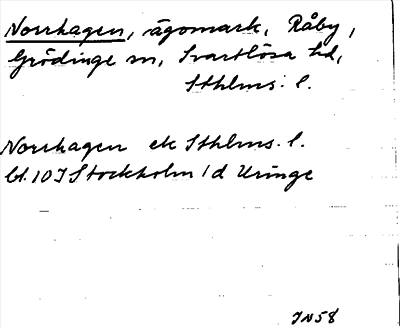 Norrhagen, ägomark, Råby,
Grödinge sn, Svartlösa hd,
Sthlms. l.
Norrhagen ek Sthlms. l.
bl. 10 I Stockholm 1 d Uringe
JN58